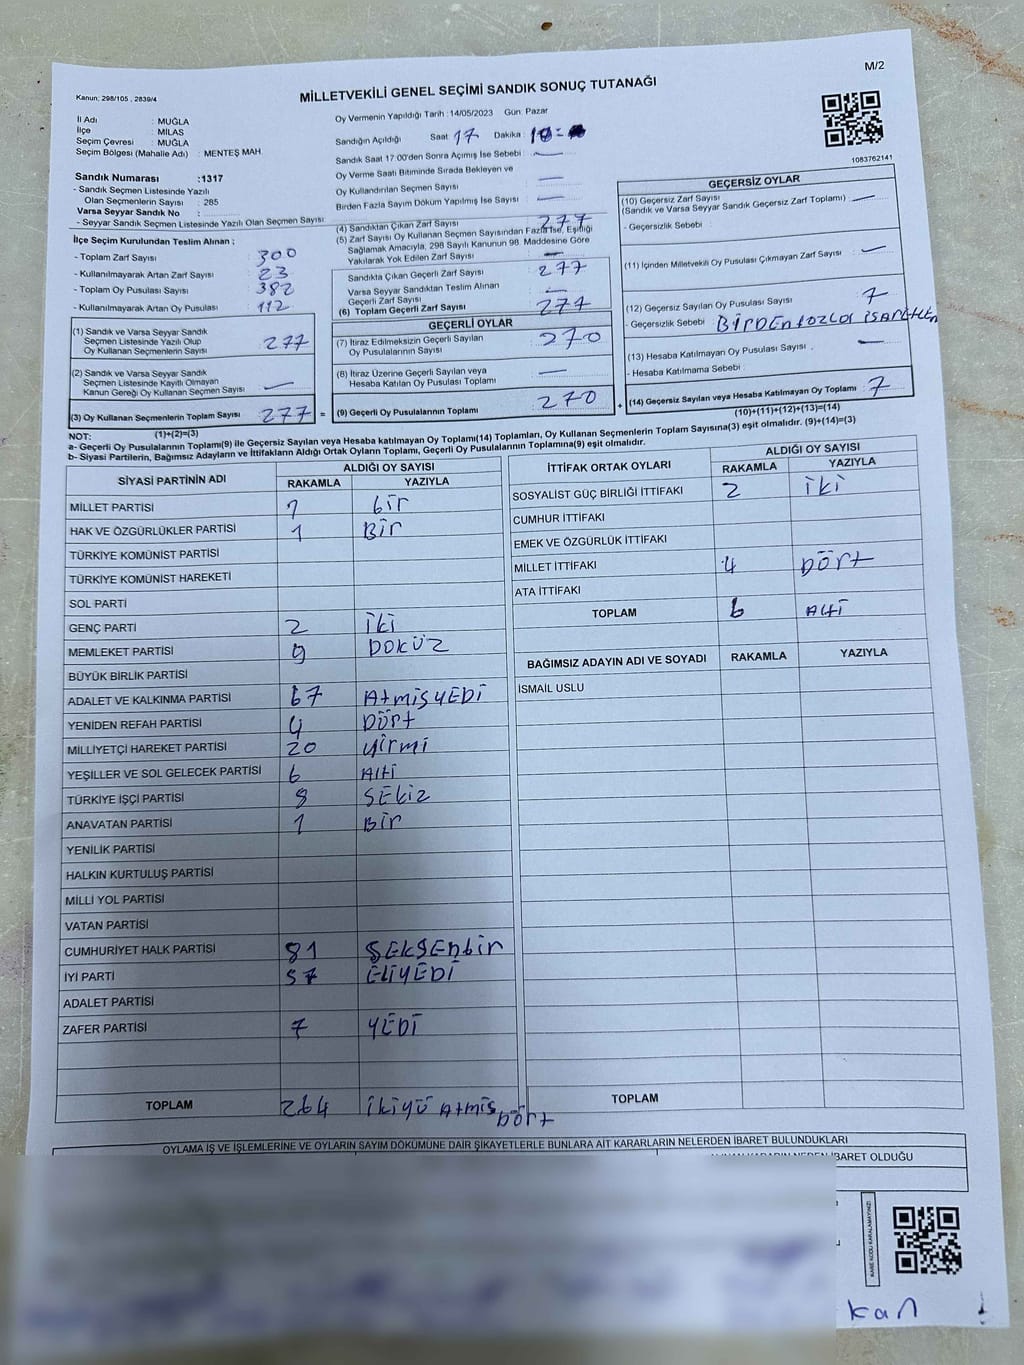 M/2
Kanun: 298/105 , 2839/4
MİLLETVEKİLİ GENEL SEÇİMİ SANDIK SONUÇ TUTANAĞI
İl Adı : MUĞLA
İlçe : MİLAS
Seçim Çevresi : MUĞLA
Seçim Bölgesi (Mahalle Adı) : MENTEŞ MAH.
Sandık Numarası :1317
- Sandık Seçmen Listesinde Yazılı
Olan Seçmenlerin Sayısı : 285
Varsa Seyyar Sandık No :
- Seyyar Sandık Seçmen Listesinde Yazılı Olan Seçmen Sayısı:
Oy Vermenin Yapıldığı Tarih : 14/05/2023 Gün: Pazar
Sandığın Açıldığı Saat 17 Dakika : 10
Sandık Saat 17:00'den Sonra Açımış İse Sebebi : —
Oy Verme Saati Bitiminde Sırada Bekleyen ve
Oy Kullandırılan Seçmen Sayısı —
Birden Fazla Sayım Döküm Yapılmış İse Sayısı —
1083762141
İlçe Seçim Kurulundan Teslim Alınan ;
- Toplam Zarf Sayısı 300
- Kullanılmayarak Artan Zarf Sayısı 23
- Toplam Oy Pusulası Sayısı 382
- Kullanılmayarak Artan Oy Pusulası 112
(1) Sandık ve Varsa Seyyar Sandık
Seçmen Listesinde Yazılı Olup
Oy Kullanan Seçmenlerin Sayısı 277
(2) Sandık ve Varsa Seyyar Sandık
Seçmen Listesinde Kayıtlı Olmayan
Kanun Gereği Oy Kullanan Seçmen Sayısı —
(3) Oy Kullanan Seçmenlerin Toplam Sayısı 277 =
(1)+(2)=(3)
(4) Sandıktan Çıkan Zarf Sayısı 277
(5) Zarf Sayısı Oy Kullanan Seçmen Sayısından Fazla İse, Eşitliği
Sağlamak Amacıyla, 298 Sayılı Kanunun 98. Maddesine Göre
Yakılarak Yok Edilen Zarf Sayısı —
Sandıkta Çıkan Geçerli Zarf Sayısı 277
Varsa Seyyar Sandıktan Teslim Alınan
Geçerli Zarf Sayısı —
(6) Toplam Geçerli Zarf Sayısı 277
GEÇERLİ OYLAR
(7) İtiraz Edilmeksizin Geçerli Sayılan
Oy Pusulalarının Sayısı 270
(8) İtiraz Üzerine Geçerli Sayılan veya
Hesaba Katılan Oy Pusulası Toplamı —
(9) Geçerli Oy Pusulalarının Toplamı 270 +
GEÇERSİZ OYLAR
(10) Geçersiz Zarf Sayısı
(Sandık ve Varsa Seyyar Sandık Geçersiz Zarf Toplamı) : —
- Geçersizlik Sebebi :
(11) İçinden Milletvekili Oy Pusulası Çıkmayan Zarf Sayısı : —
(12) Geçersiz Sayılan Oy Pusulası Sayısı : 7
- Geçersizlik Sebebi : BİRDEN
(13) Hesaba Katılmayan Oy Pusulası Sayısı : —
- Hesaba Katılmama Sebebi :
(14) Geçersiz Sayılan veya Hesaba Katılmayan Oy Toplamı : 7
(10)+(11)+(12)+(13)=(14)
NOT:
a- Geçerli Oy Pusulalarının Toplamı(9) ile Geçersiz Sayılan veya Hesaba katılmayan Oy Toplamı(14) Toplamları, Oy Kullanan Seçmenlerin Toplam Sayısına(3) eşit olmalıdır. (9)+(14)=(3)
b- Siyasi Partilerin, Bağımsız Adayların ve İttifakların Aldığı Ortak Oyların Toplamı, Geçerli Oy Pusulalarının Toplamına(9) eşit olmalıdır.
SİYASİ PARTİNİN ADI ALDIĞI OY SAYISI
RAKAMLA YAZIYLA
MİLLET PARTİSİ 1 bir
HAK VE ÖZGÜRLÜKLER PARTİSİ 1 Bir
TÜRKİYE KOMÜNİST PARTİSİ
TÜRKİYE KOMÜNİST HAREKETİ
SOL PARTİ
GENÇ PARTİ 2 iki
MEMLEKET PARTİSİ 9 DOKUZ
BÜYÜK BİRLİK PARTİSİ
ADALET VE KALKINMA PARTİSİ 67 AtmişYEDİ
YENİDEN REFAH PARTİSİ 4 Dört
MİLLİYETÇİ HAREKET PARTİSİ 20 yirmi
YEŞİLLER VE SOL GELECEK PARTİSİ 6 Altı
TÜRKİYE İŞÇİ PARTİSİ 8 SEKİZ
ANAVATAN PARTİSİ 1 Bir
YENİLİK PARTİSİ
HALKIN KURTULUŞ PARTİSİ
MİLLİ YOL PARTİSİ
VATAN PARTİSİ
CUMHURİYET HALK PARTİSİ 81 ŞEKŞENbir
İYİ PARTİ 57 ELİYEDİ
ADALET PARTİSİ
ZAFER PARTİSİ 7 YEDİ
TOPLAM 264 ikiyü Atmiş Dört
İTTİFAK ORTAK OYLARI ALDIĞI OY SAYISI
RAKAMLA YAZIYLA
SOSYALİST GÜÇ BİRLİĞİ İTTİFAKI 2 iki
CUMHUR İTTİFAKI
EMEK VE ÖZGÜRLÜK İTTİFAKI
MİLLET İTTİFAKI 4 Dört
ATA İTTİFAKI
TOPLAM 6 Altı
BAĞIMSIZ ADAYIN ADI VE SOYADI RAKAMLA YAZIYLA
İSMAİL USLU
TOPLAM
OYLAMA İŞ VE İŞLEMLERİNE VE OYLARIN SAYIM DÖKÜMÜNE DAİR ŞİKAYETLERLE BUNLARA AİT KARARLARIN NELERDEN İBARET BULUNDUKLARI
İBARET OLDUĞU
KARE KODU KARALAMAYINIZ!
kan